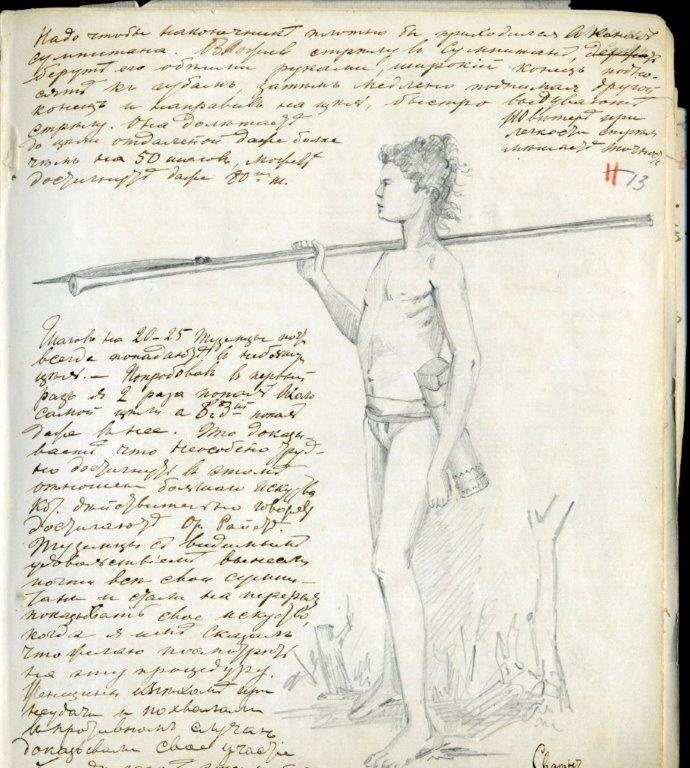 Надо чтобы наконечникъ плотно бы приходился
сумпитана. Вложив стрелу в сумпитан,
берутъ его обеими руками, широкий конецъ подно-
сятъ къ губамъ, затемъ медлено поднимая другой
конецъ и направивъ на цель, быстро выдуваютъ
стрелу. Она долетаетъ
до цели отдаленой даже более
чемъ на 50 шаговъ, можетъ
достигнуть даже 80
но ветеръ при
легкости стрелы
мешаетъ
H 13
Шагов на 20-25 туземцы
всегда попадаютъ в
цель. — Попробовав в первый
разъ я 2 раза попалъ около
самой цели а въ 3ий попалъ
даже в нее. Это доказы-
ваетъ что неособено труд-
но достигнуть в этомъ
отношении большаго искуства
кот. действительно говорятъ
достигаютъ Ор. Райетъ.
Туземцы съ видимымъ
удовольствиемъ вынесли
почти все свои сумпи-
таны и стали на перерывъ
показывать свое искуство
когда я имъ сказалъ
что желаю посмотреть
на эту процедуру.
Женщины при
неудачи и похвалами
в противномъ случае
доказывали свое участие